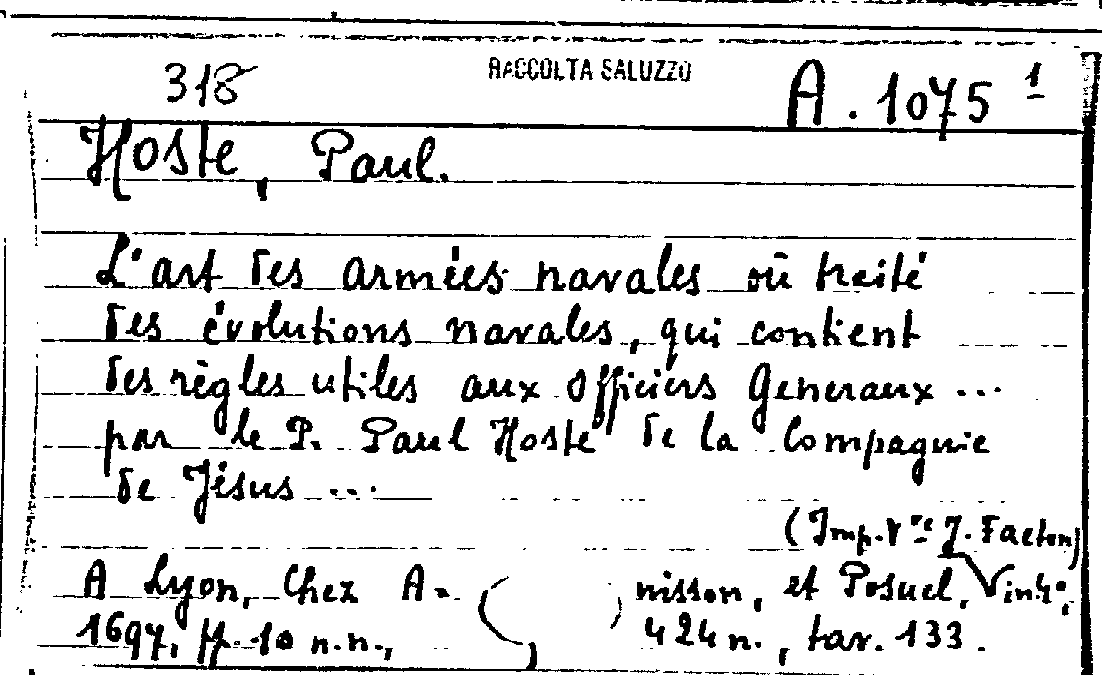 318 RACCOLTA SALUZZO A. 1075 1
Hoste, Paul.
L'art des armées navales où traité
des évolutions navales, qui contient
des règles utiles aux Officiers Generaux ...
par le P. Paul Hoste de la Compagnie
de Jésus ...
(Imp. Vve J. Facton)
A Lyon, Chez A= nisson, et Posuel, in 4°,
1697, ff. 10 n.n., 424 n., tav. 133.